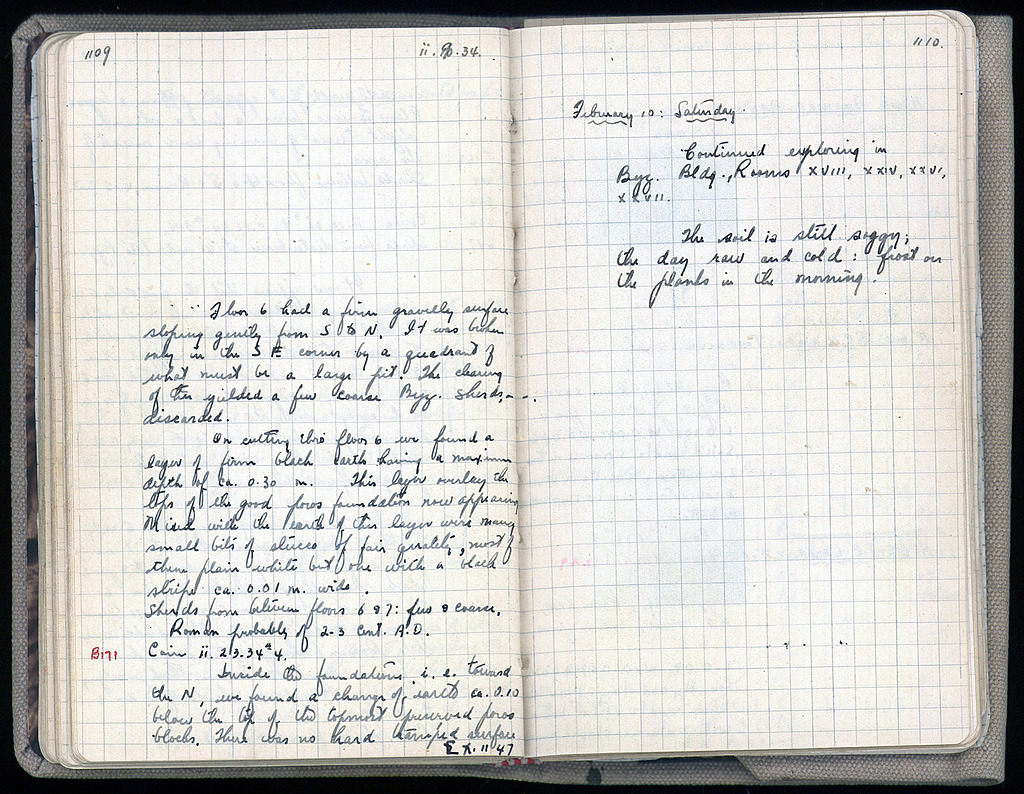 1109
ii. 9. 34.
Floor 6 had a firm gravelly surface
sloping gently from S to N. It was broken
only in the S E corner by a quadrant of
what must be a large pit. The clearing
of this yielded a few coarse Byz. sherds, - - .
discarded.
On cutting thro floor 6 we found a
layer of firm black earth having a maximum
depth of ca. 0.30 m. This layer overlay the
tops of the good poros foundation now appearing
Mixed with the earth of this layer were many
small bits of stucco of fair quality, most of
them plain white but one with a black
stripe ca. 0.01 m. wide.
Sherds from between floors 6 & 7: few & coarse.
Roman probably of 2-3 cent. A.D.
B171
Coin ii. 23.34 #4.
Inside the foundations, i. e. toward
the N, we found a change of earth ca. 0.10
below the top of the topmost preserved poros
blocks. There was no hard stamped surface
1147
1110.
February 10: Saturday.
Continued exploring in
Byz. Bldg., Rooms XVIII, XXIV, XXVI,
XXVII.
The soil is still soggy;
the day raw and cold: frost on
the plants in the morning.